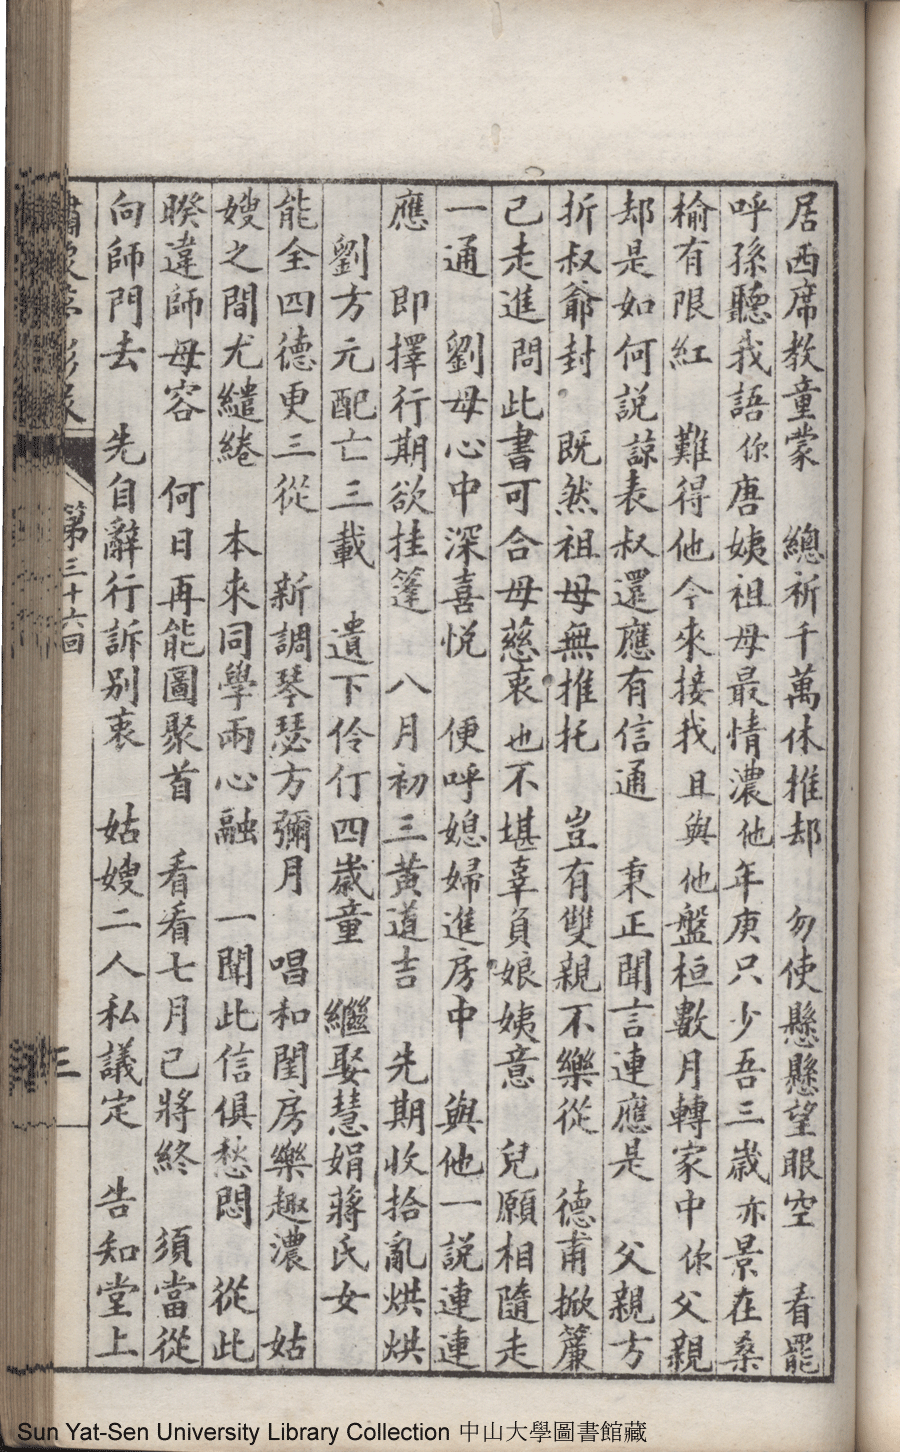 居西席教童蒙　總祈千萬休推却　勿使懸懸望眼空　看罷
呼孫聽我語　你唐姨祖母最情濃　他年庚只少吾三歲　亦景在桑
榆有限紅　難得他今來接我　且與他盤桓數月轉家中　你父親
却是如何說　諒表叔還應有信通　秉正聞言連應是　父親方
折叔爺封　既然祖母無推托　豈有雙親不樂從　德甫掀簾
已走進　問此書可合母慈衷　也不堪辜負娘姨意　兒願相隨走
一通　劉母心中深喜悅　便呼媳婦進房中　與他一說連連
應　即擇行期欲挂篷　八月初三黃道吉　先期收拾亂烘烘
劉方元配亡三載　遺下伶仃四歲童　繼娶慧娟蔣氏女
能全四德更三從　新調琴瑟方彌月　唱和閨房樂趣濃　姑
嫂之間尤繾綣　本來同學兩心融　一聞此信俱愁悶　從此
暌違師母容　何日再能圖聚首　看看七月已將終　須當從
向師門去　先自辭行訴別衷　姑嫂二人私議定　告知堂上
第三十六回
三
Sun Yat-Sen University Library Collection 中山大學圖書館藏